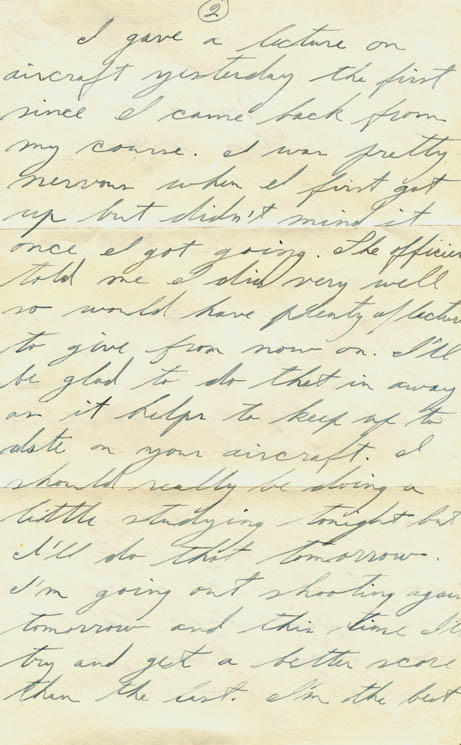 2
I gave a lecture on
aircraft yesterday the first
since I came back from
my course. I was pretty
nervous when I first got
up but didn't mind it
once I got going. The officer
told me I did very well
so would have plenty of lectures
to give from now on. I'll
be glad to do that in away
as it helps to keep up to
date on your aircraft. I
should really be doing a
little studying tonight but
I'll do that tomorrow.
I'm going out shooting again
tomorrow and this time I'll
try and get a better score
than the last. I'm the best